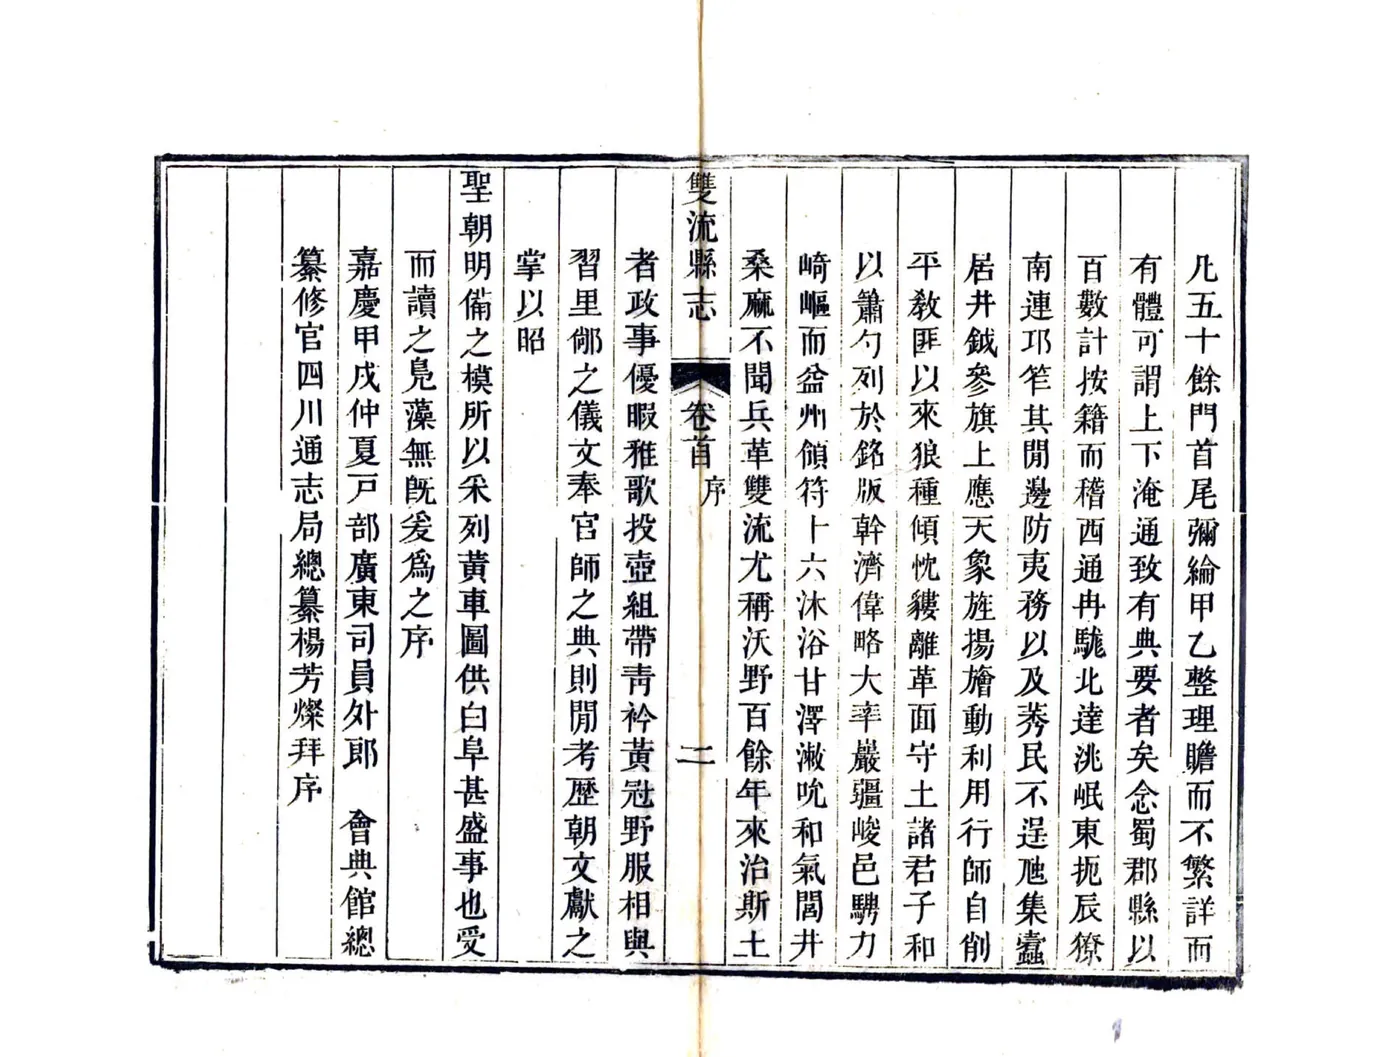 凡五十餘門首尾彌綸甲乙整理贍而不繁詳而
有體可謂上下淹通致有典要者矣念蜀郡縣以
百數計按籍而稽西通冉駹北達洮岷東扼辰獠
南連邛笮其閒邊防夷務以及莠民不逞虺集蠹
居井鉞參旗上應天象旌揚旝動利用行師自削
平敎匪以來狼種傾忱貗離革面守土諸君子和
以簫勺列於銘版幹濟偉略大率巖疆峻邑騁力
崎嶇而益州領符十六沐浴甘澤潄吮和氣閭井
桑麻不聞兵革雙流尤稱沃野百餘年來治斯土
雙流縣志 卷首 序 二
者政事優暇雅歌投壺組帶靑衿黃冠野服相與
習里鄉之儀文奉官師之典則閒考歷朝文獻之
掌以昭
聖朝明備之模所以采列黃車圖供白阜甚盛事也受
而讀之鳧藻無旣爰爲之序
嘉慶甲戌仲夏戸部廣東司員外郎 會典館總
纂修官四川通志局總纂楊芳燦拜序